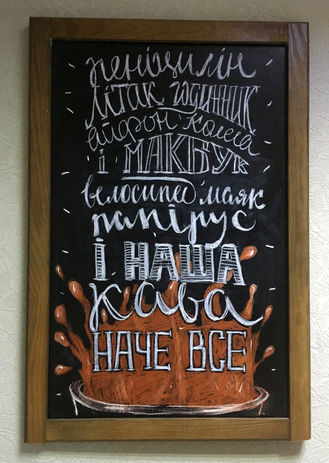 пеніцилін
літак годинник
айфон колеса
і МАКБУК
велосипед маяк
папірус
і НАША
кава
НАЧЕ ВСЕ